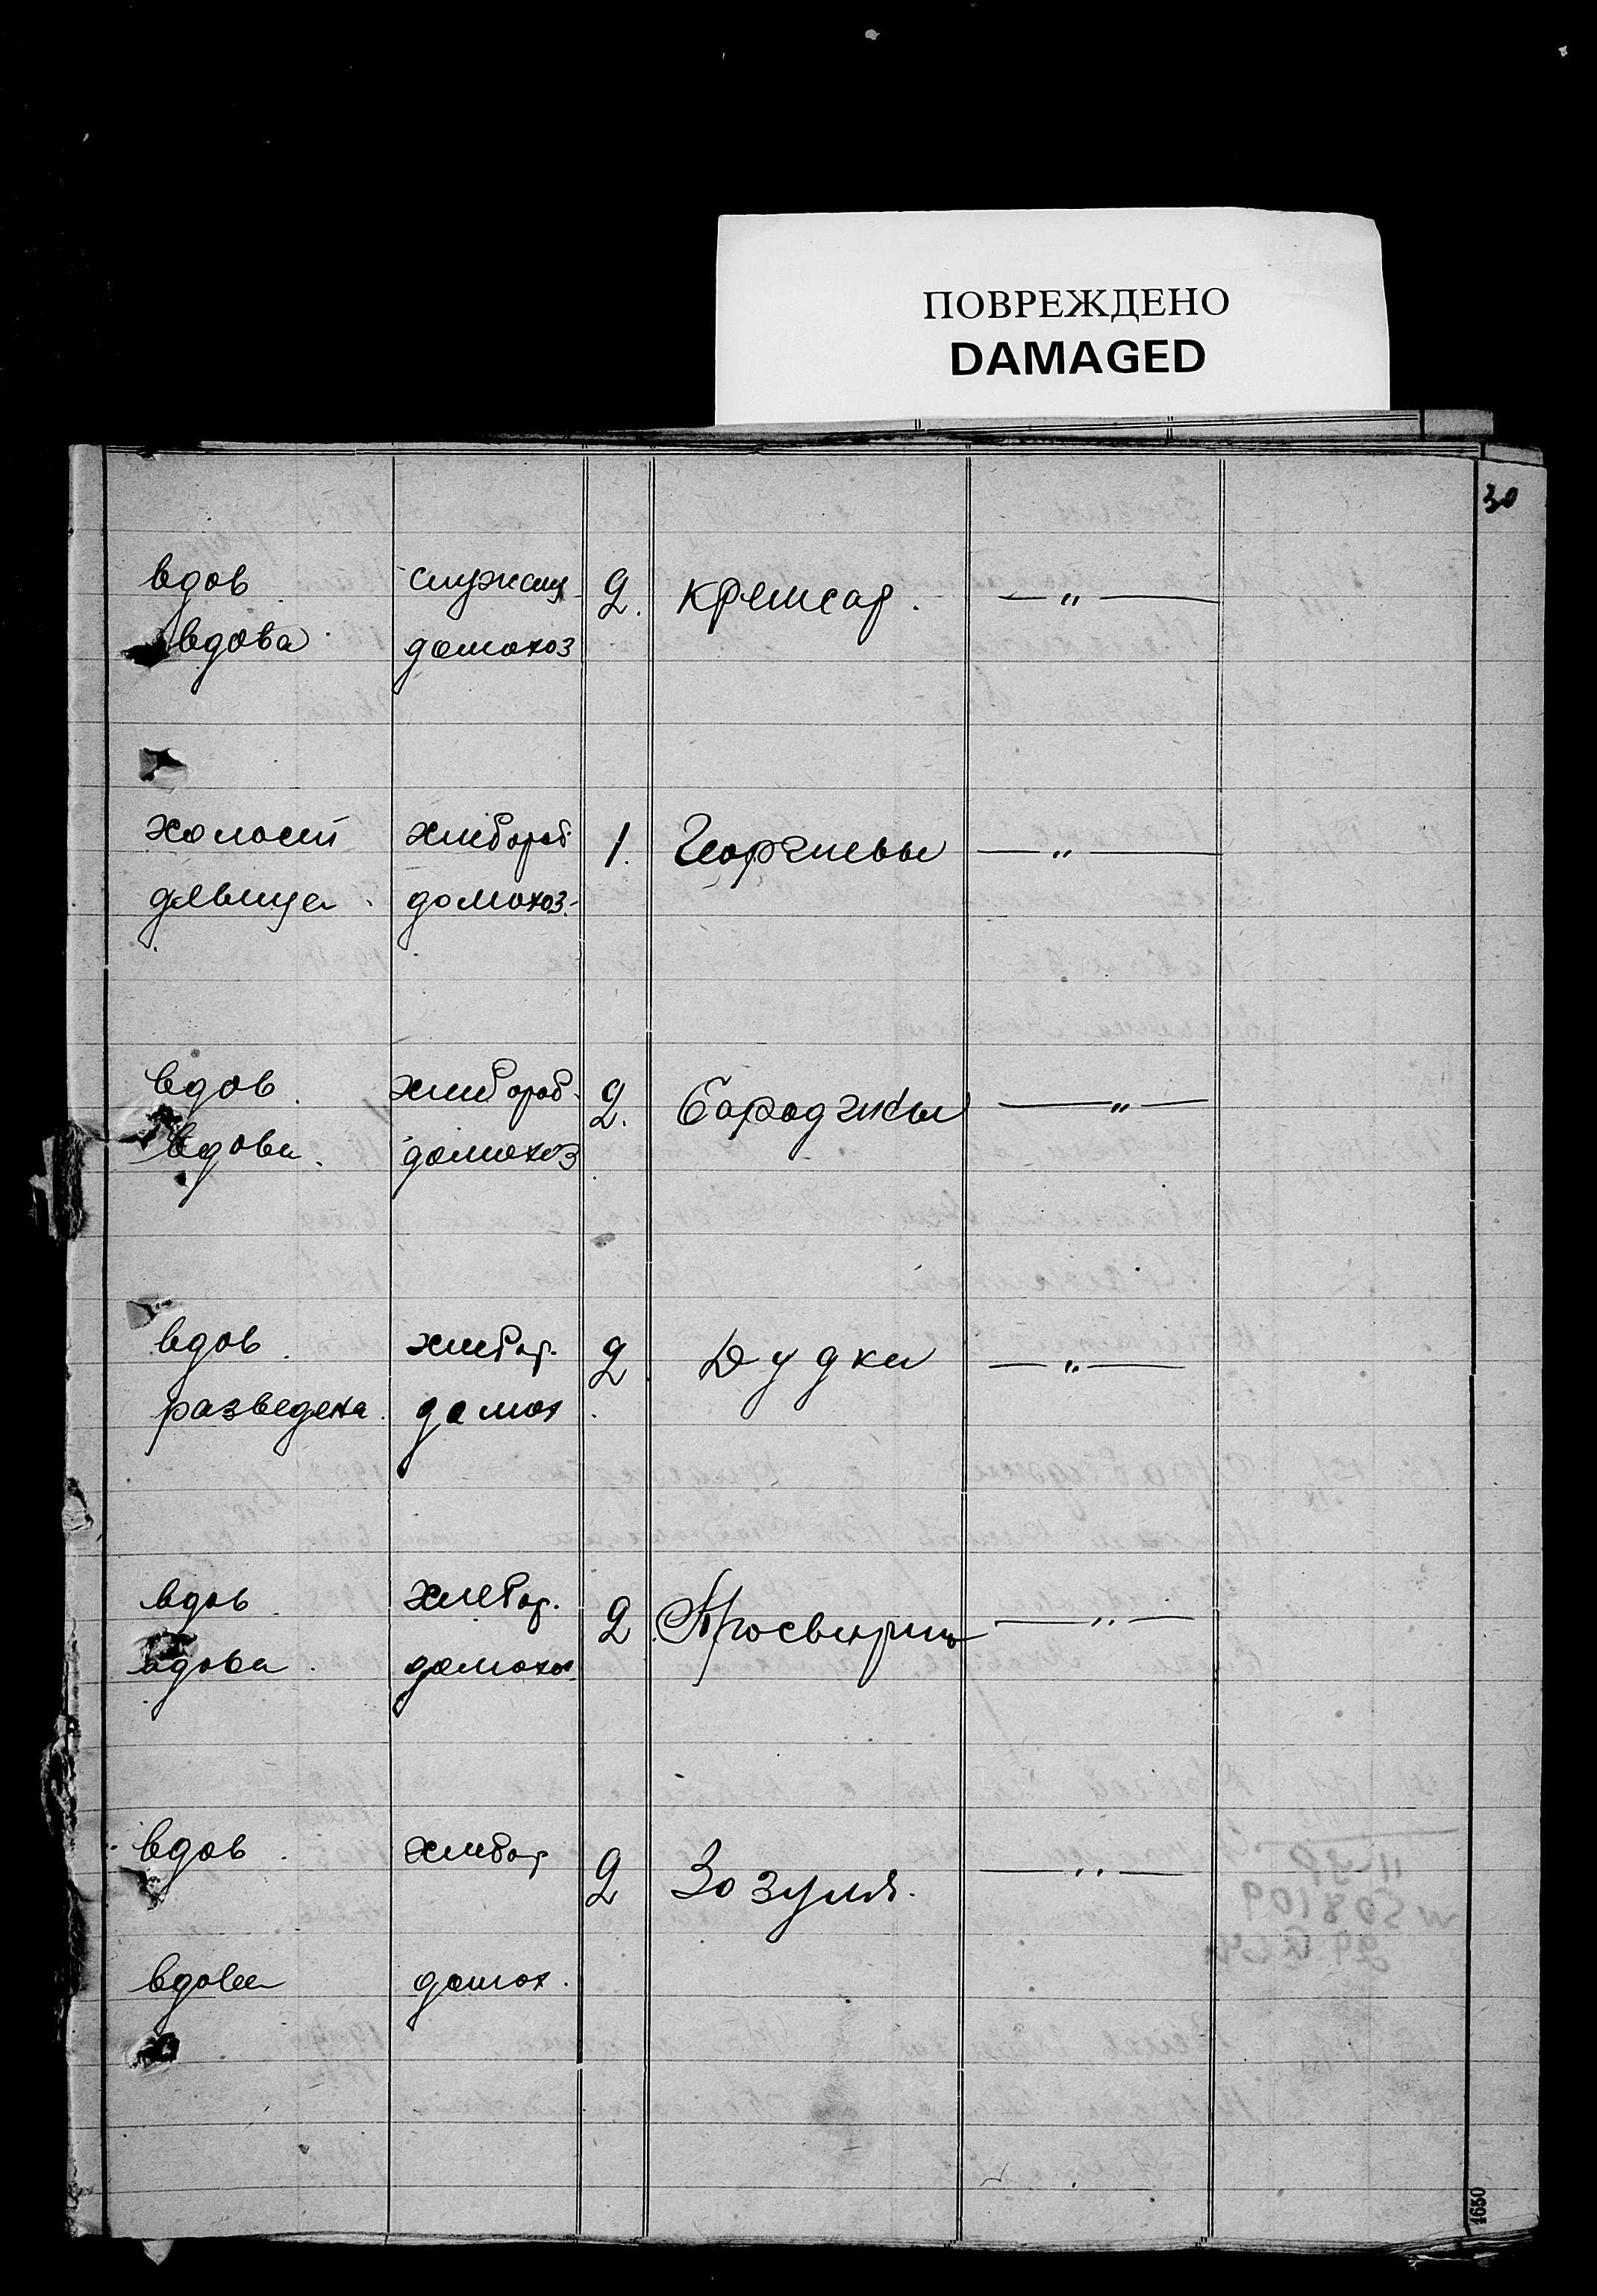 ПОВРЕЖДЕНО
DAMAGED
30
вдов. служащ. 2. Крешсар. — „ —
вдова. домохоз
холост хлебороб 1. Георгиевы — „ —
девица. домохоз.
вдов. хлебороб. 2. Бароджиы — „ —
вдова. домохоз
вдов. хлебор. 2 Дудка — „ —
разведена. домох.
вдов. хлебор. 2 Просвирин — „ —
вдова. домохоз
вдов. хлебор 2 Зозуля. — „ —
вдова домох.
1650